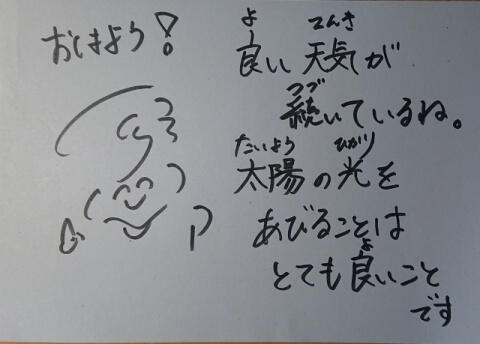 おはよう!
よ てんき
良い天気が
つづ
続いているね。
たいよう ひかり
太陽の光を
あびることは
よ
とても良いこと
です